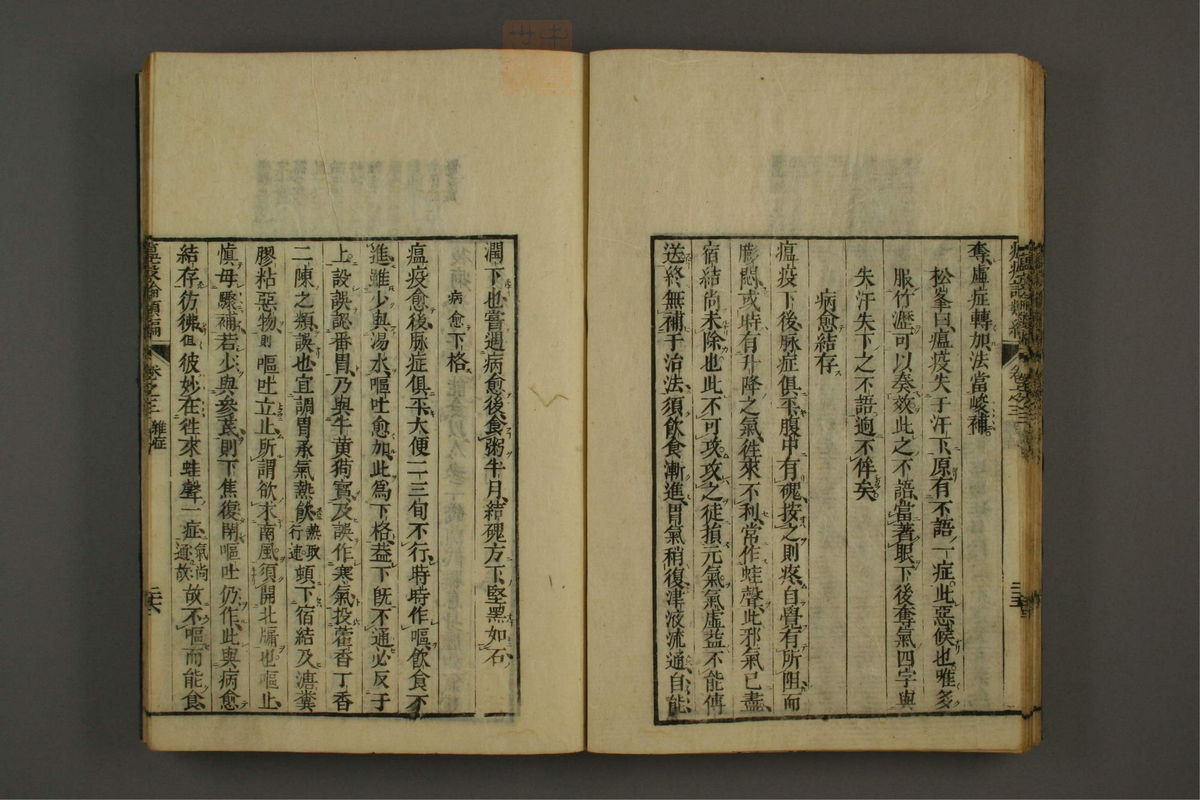 奪虛症轉加法當峻補
松峯曰瘟疫失于汗下原有不語一症此惡候也唯多
服竹瀝可以奏效此之不語當著眼下後奪氣四字與
失汗失下之不語逈不侔矣
病愈結存
瘟疫下後脉症俱平腹中有塊按之則疼自覺有所阻而
膨悶或時有升降之氣徃來不利常作蛙聲此邪氣已盡
宿結尚未除也此不可攻攻之徒損元氣氣虛益不能傳
送終無補于治法須飲食漸進胃氣稍復津液流通自能
潤下也嘗遇病愈後食粥半月結塊方下堅黑如石
病愈下格
瘟疫愈後脉症俱平大便二三旬不行時時作嘔飲食不
進雖少與湯水嘔吐愈加此為下格葢下旣不通必反于
上設誤認番胃乃與牛黃狗寶及誤作寒氣投藿香丁香
二陳之類誤也宜調胃承氣熱飲熱取行速頓下宿結及溏糞
膠粘惡物則嘔吐立止所謂欲求南風須開北牖也嘔止
愼毋驟補若少與參芪則下焦復閉嘔吐仍作此與病愈
結存彷彿但彼妙在徃來蛙聲一症氣尚通故故不嘔而能食
瘟疫論類編
卷之三
雜症
二十六